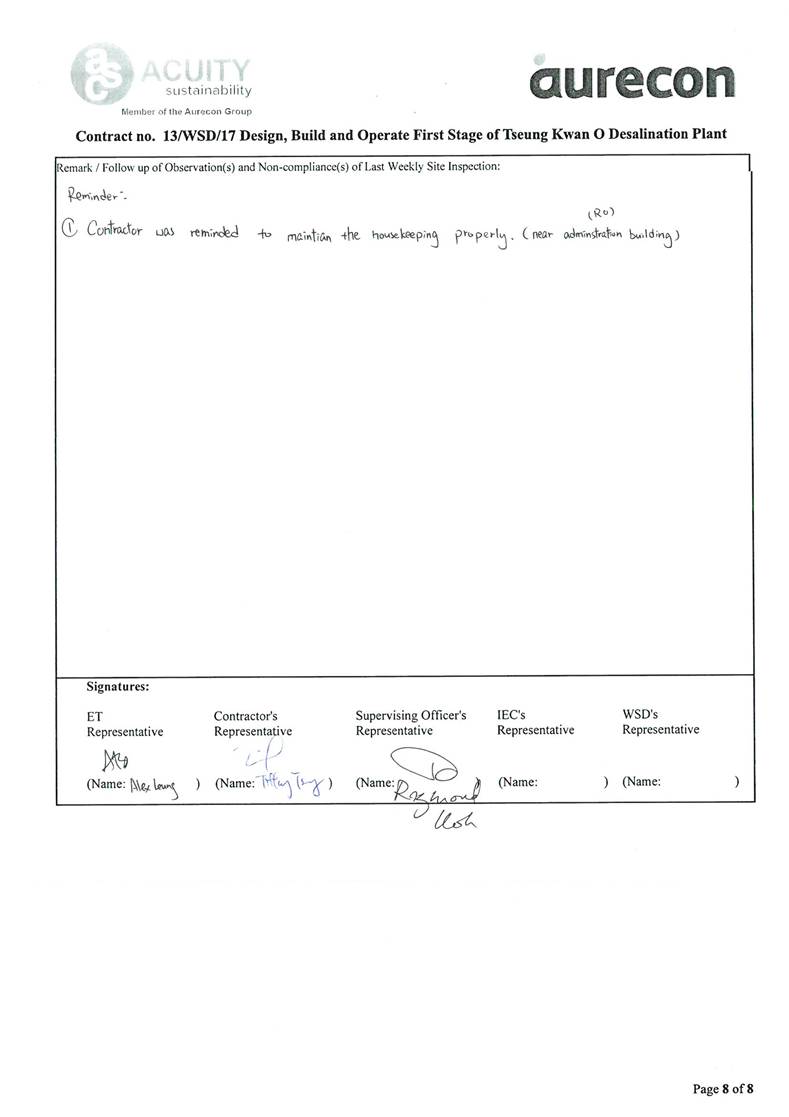 asc ACUITY
sustainability
Member of the Aurecon Group
aurecon
Contract no. 13/WSD/17 Design, Build and Operate First Stage of Tseung Kwan O Desalination Plant
Remark / Follow up of Observation(s) and Non-compliance(s) of Last Weekly Site Inspection:
Reminder:-
(RO)
① Contractor was reminded to maintian the housekeeping properly. (near adminstration building)
Signatures:
ET Contractor's Supervising Officer's IEC's WSD's
Representative Representative Representative Representative Representative
(Name: Alex Leung ) (Name: Tiffany ) (Name: Raymond ) (Name: ) (Name: )
Page 8 of 8